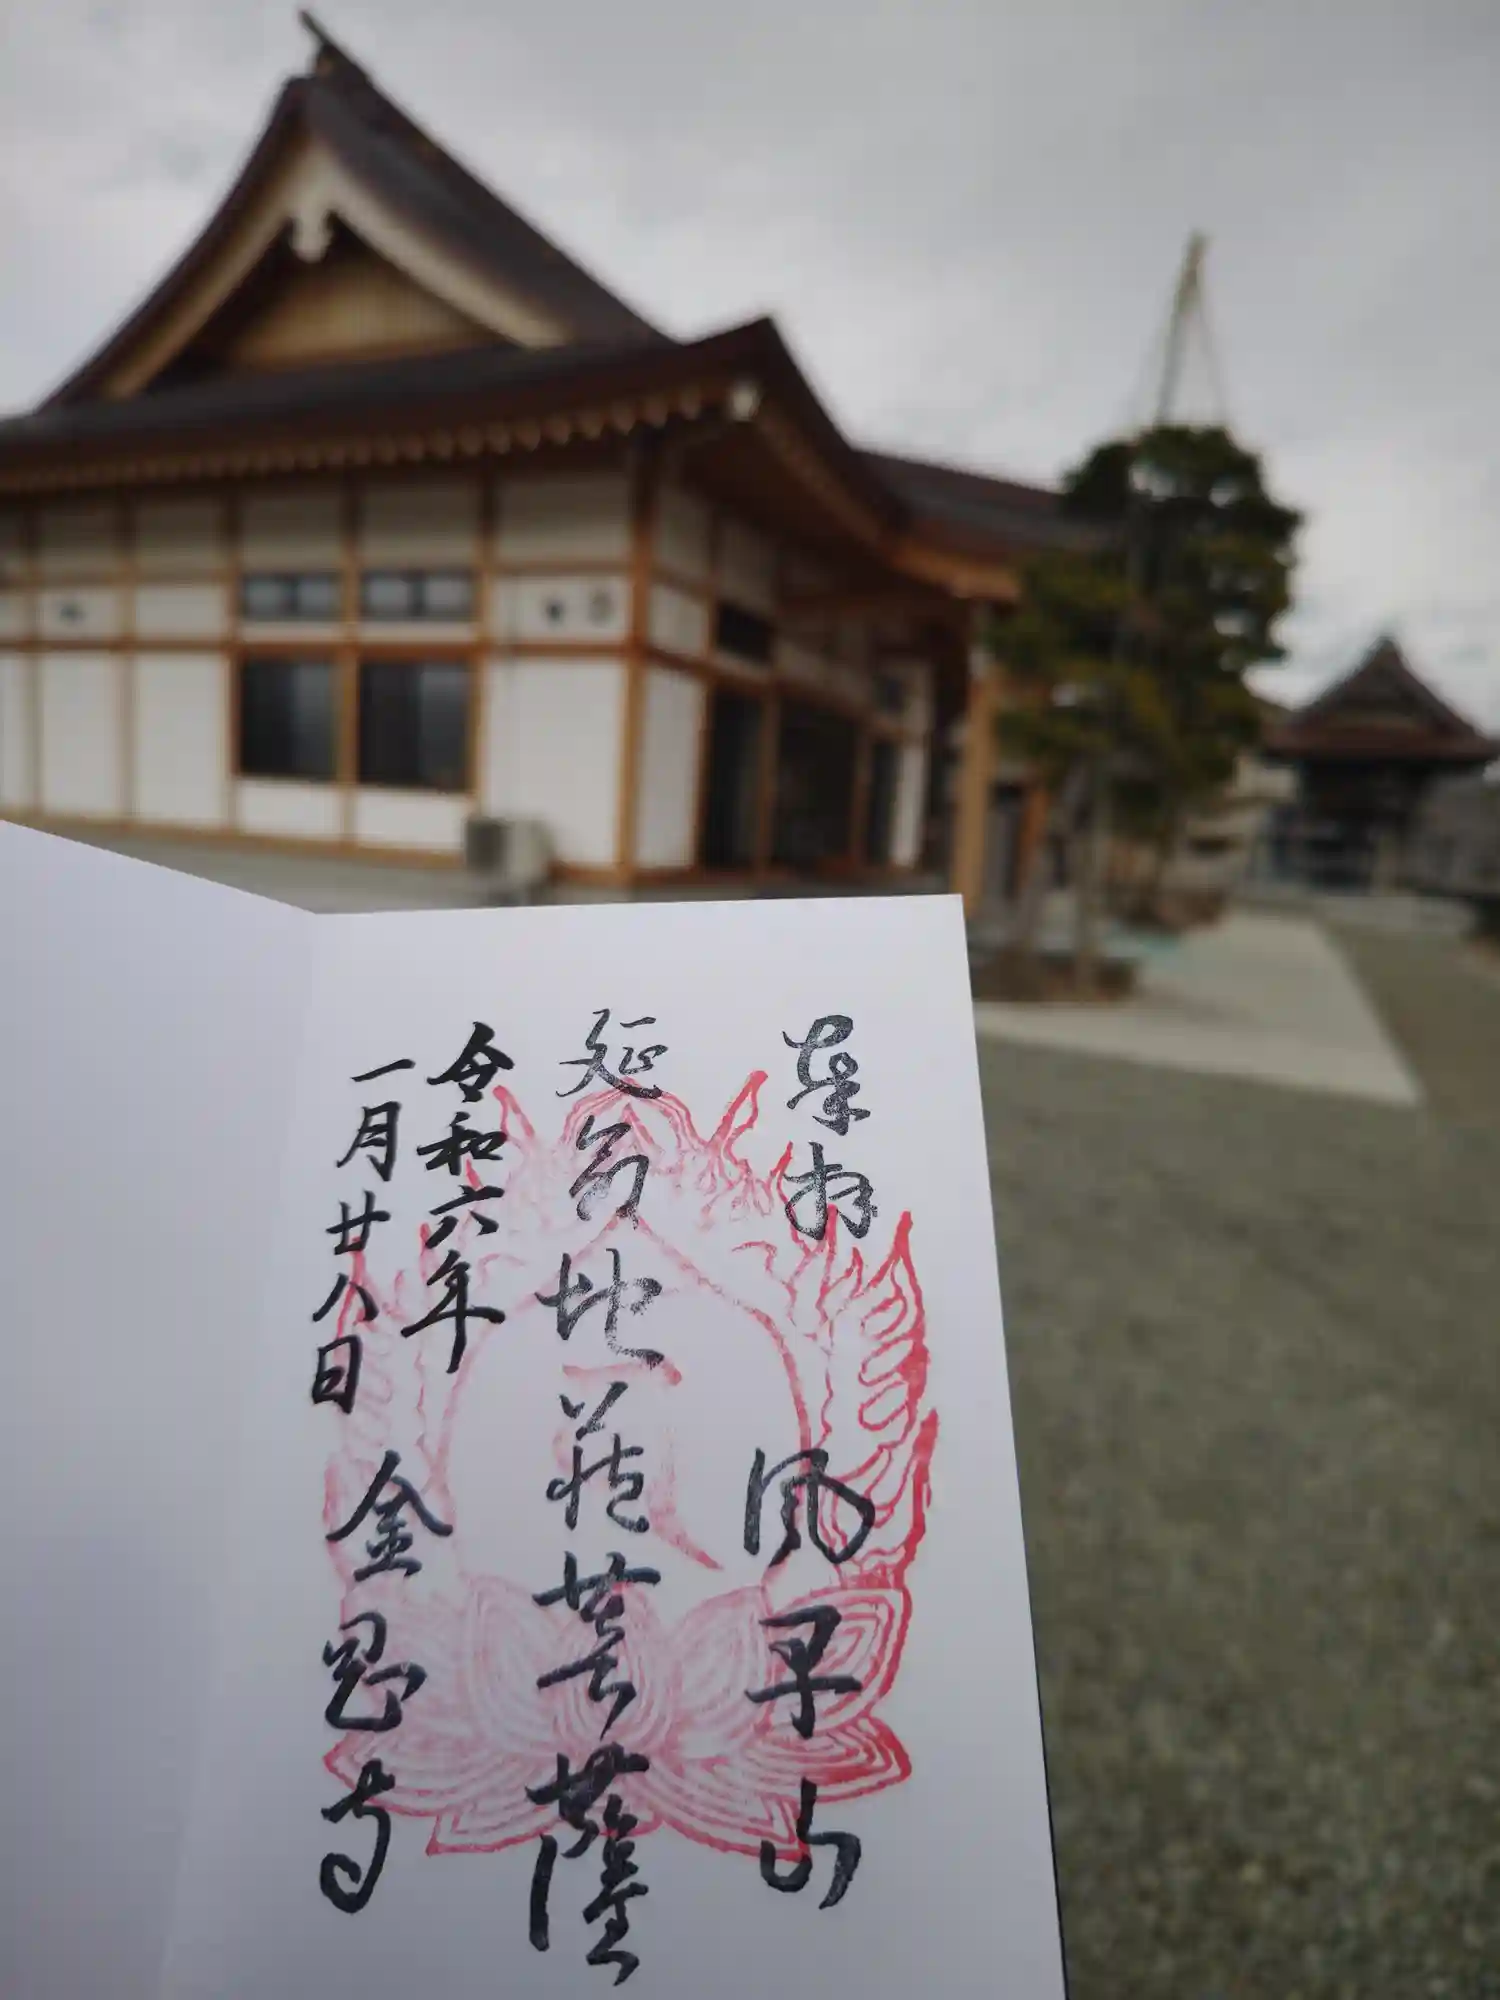 奉拝
風早山
延命地蔵菩薩
令和六年
一月廿八日
金恩寺